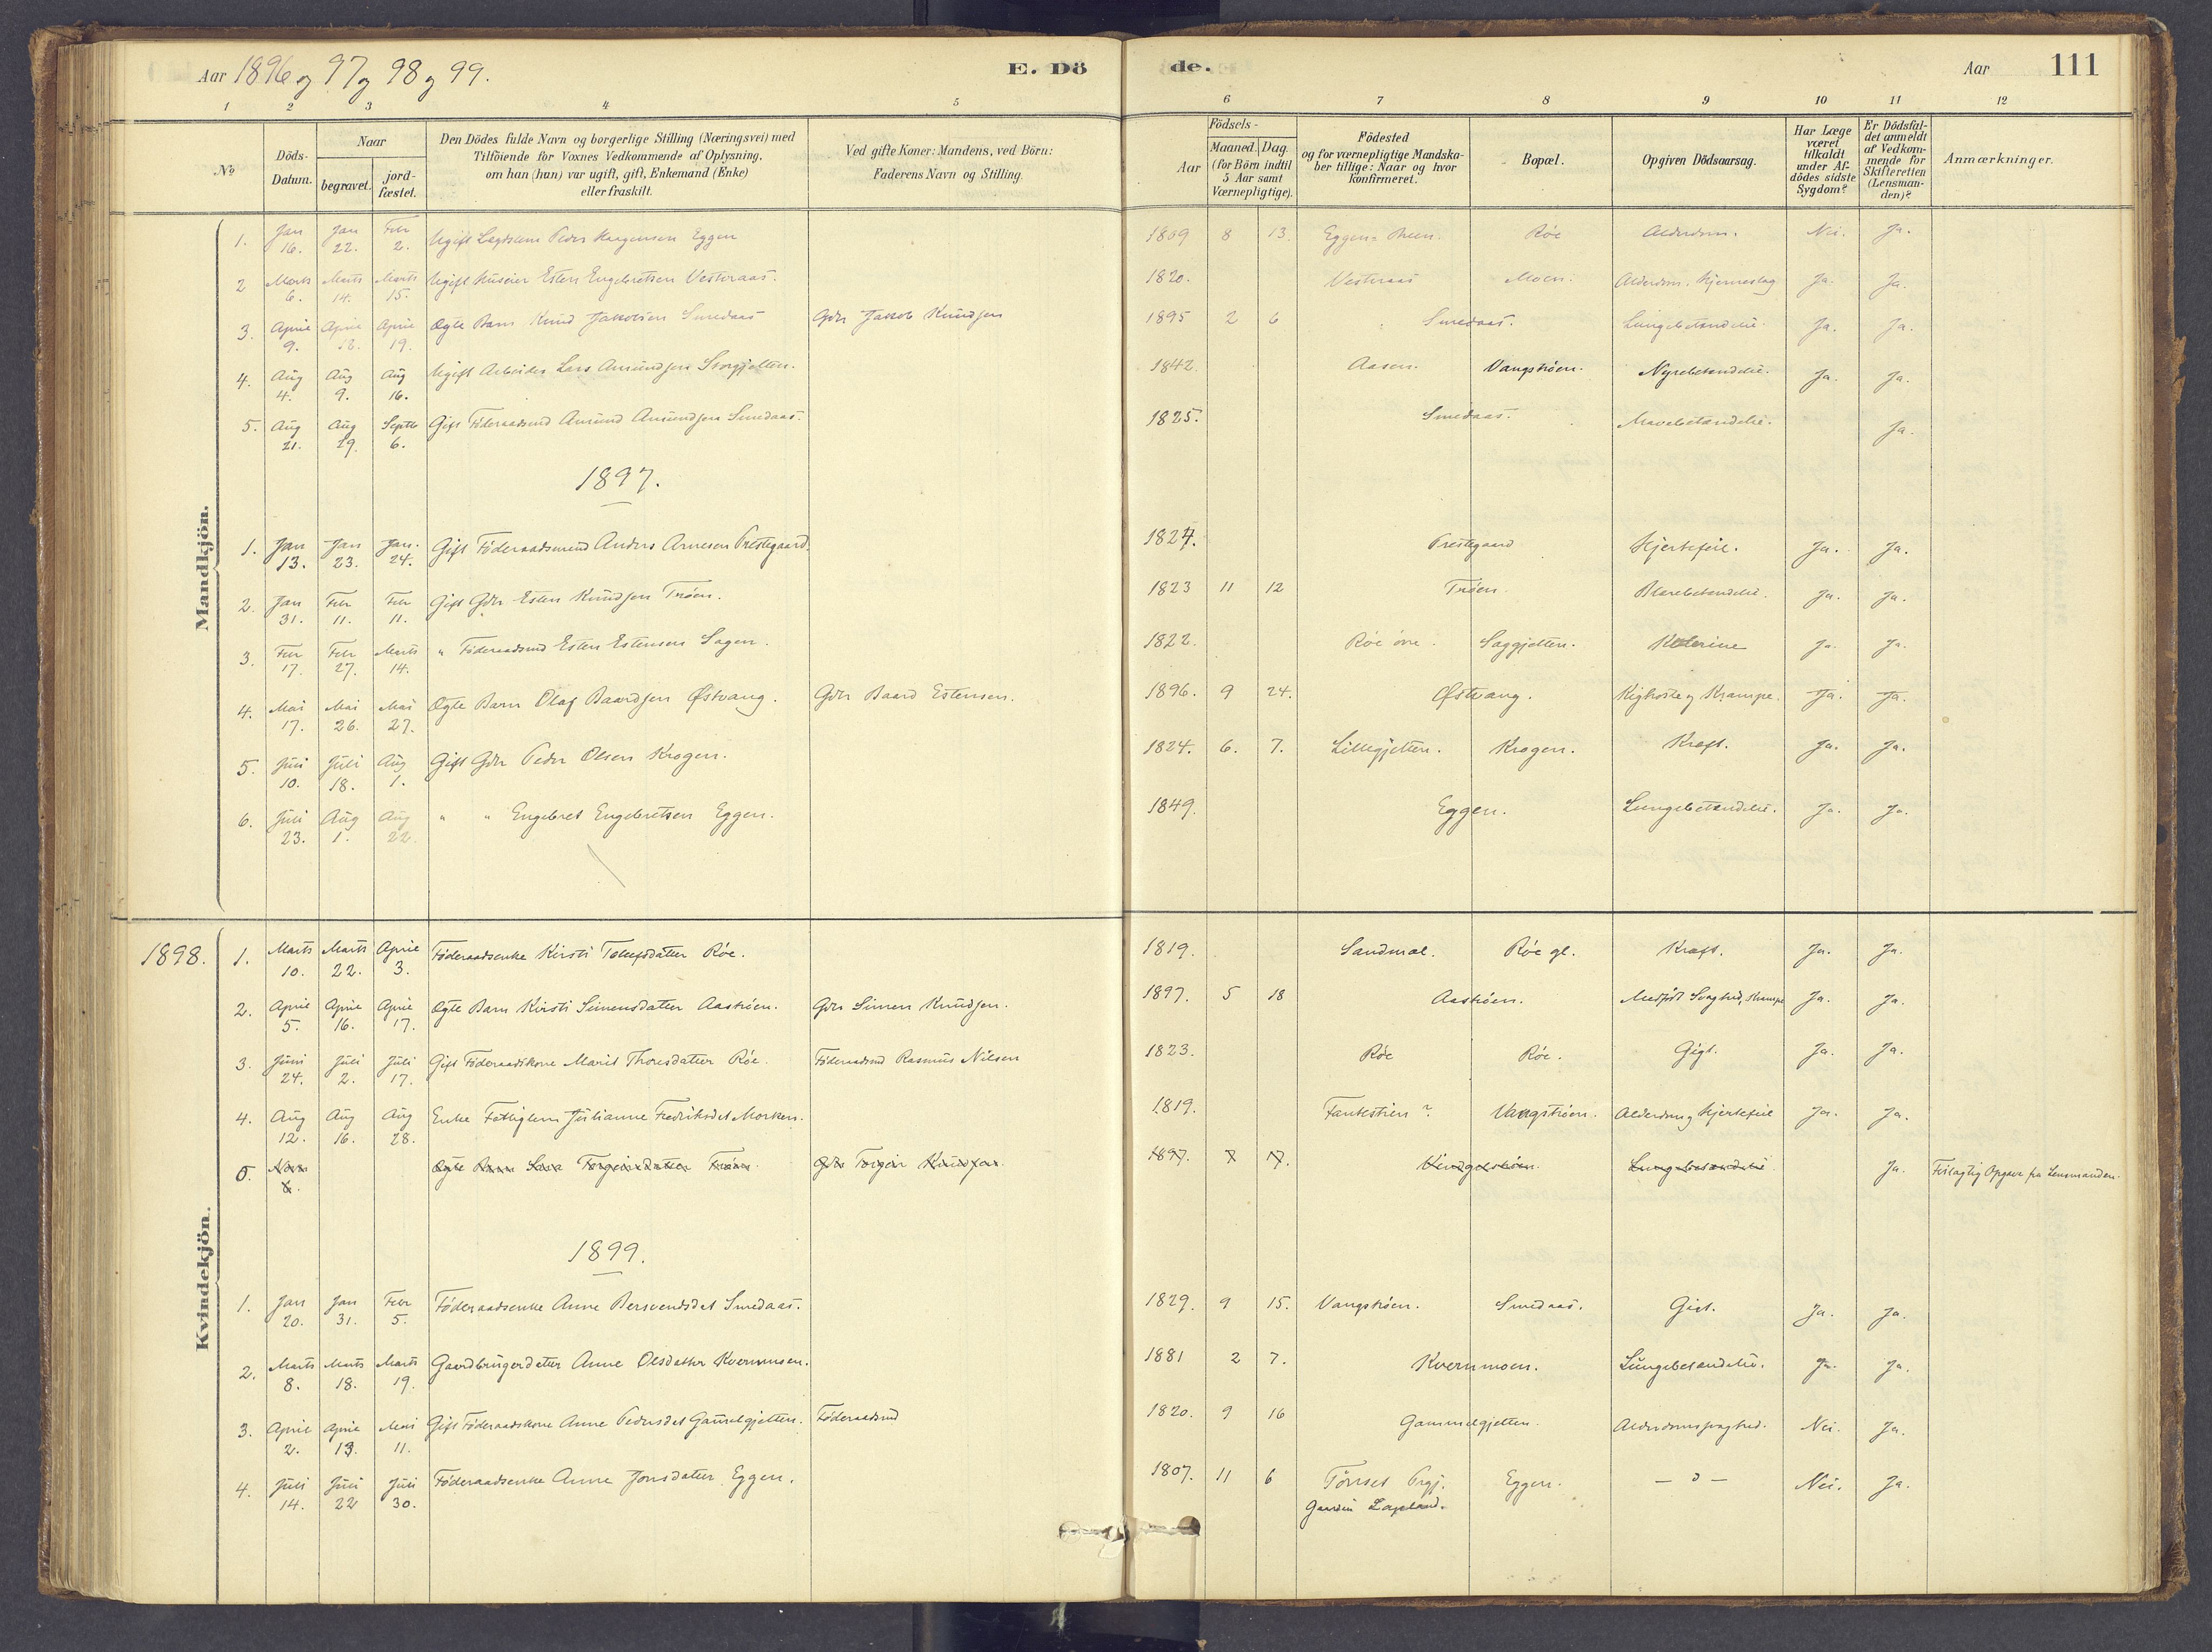 Aar 1896 og 97 og 98 og 99.
E. Dö
de.
Aar
111
1 2 3 4 5 6 7 8 9 10 11 12
No
Döds-Datum.
Naar
begravet.
jord-fæstet.
Den Dödes fulde Navn og borgerlige Stilling (Næringsvei) med
Tilföiende for Voxnes Vedkommende af Oplysning,
om han (hun) var ugift, gift, Enkemand (Enke)
eller fraskilt.
Ved gifte Koner: Mandens, ved Börn:
Faderens Navn og Stilling.
Födsels-
Aar
Maaned. Dag.
(for Börn indtil
5 Aar samt
Værnepligtige).
Födested
og for værnepligtige Mandska-
ber tillige: Naar og hvor
konfirmeret.
Bopæl.
Opgiven Dödsaarsag.
Har Læge
været
tilkaldt
under Af-
dödes sidste
Sygdom?
Er Dödsfal-
det anmeldt
af Vedkom-
mende for
Skifteretten
(Lensman-
den)?
Anmærkninger.
Mandkjön.
1. Jan 16. Jan 22. Febr 2. Ugift Lægdslem Peder Haagensen Eggen 1809 8 13. Eggen Røe Alderdom. Nei. Ja.
2 Marts 6. Marts 14. Marts 15. Ugift Huseier Esten Engebretsen Vesteraas. 1820. Vesteraas Moen. Alderdom. Hjerneslag Ja. Ja.
3. April 9. April 18. April 19. Ægte Barn Knud Jakobsen Smedaas Gdr Jakob Knudsen 1895 2 6 Smedaas. Lungebetændelse. Ja. Ja.
4. Aug 4. Aug 9. Aug 16. Ugift Arbeider Lars Amundsen Storgjetten. 1842. Aasen. Vangstrøen. Nyrebetændelse. Ja. Ja.
5. Aug 21. Aug 29. Septb 6. Gift Föderaadsmd Amund Amundsen Smedaas. 1825. Smedaas. Mavebetændelse. Ja.
1897.
1. Jan 13. Jan 23. Jan. 24. Gift Föderaadsmand Anders Arnesen Prestegaard. 1824. Prestegaard Hjertefeil. Ja. Ja.
2. Jan 31. Febr 11. Febr 11. Gift Gdr Esten Knudsen Trøen. 1823 11 12 Trøen. Blærebetændelse. Ja. Ja.
3. Febr 17. Febr 27. Marts 14. " Föderaadsmd Esten Estensen Sagen. 1822. Røe øvre. Saggjetten. Kolerine Ja. Ja.
4. Mai 17. Mai 26. Mai 27. Ægte Barn Olaf Baardsen Østvang. Gdr Baard Estensen. 1896. 9 24. Østvang. Kighoste og Krampe. Ja. Ja.
5. Juni 10. Juli 18. Aug 1. Gift Gdr Peder Olsen Krogen. 1824. 6. 7. Lillegjetten. Krogen. Kræft. Ja. Ja.
6. Juli 23. Aug 1. Aug 22. " " Engebret Engebretsen Eggen. 1849. Eggen. Lungebetændelse. Ja. Ja.
Kvindekjön.
1898. 1. Marts 10. Marts 22. April 3. Föderaadsenke Kirsti Tollefsdatter Røe. 1819. Sandmæl. Røe gl. Kræft. Ja. Ja.
2. April 5. April 16. April 17. Ægte Barn Kirsti Simensdatter Aastrøen. Gdr Simen Knudsen. 1897. 5 18 Aastrøen. Medfødt Svaghed, Krampe Ja. Ja.
3. Juni 24. Juli 2. Juli 17. Gift Föderaadskone Marit Thoresdatter Røe. Föderaadsmd Rasmus Nilsen 1823. Røe Røe. Gigt. Ja. Ja.
4. Aug 12. Aug 16. Aug 28. Enke Fattiglem Julianne Fredriksdat Morken. 1819. Vangstrøen. Alderdom og Hjertefeil Ja. Ja.
0. Nov 8. Ægte Barn Torgeirsdatter Trøen. Gdr Torgeir Knudsen 1897. 7 17. Lungebetændelse Ja. Feilagtig Opgave fra Lensmanden.
1899.
1. Jan 20. Jan 31. Febr 5. Föderaadsenke Anne Bersvendsdat Smedaas. 1829. 9 15. Vangstrøen. Smedaas. Gigt. Ja. Ja.
2. Marts 8. Marts 18. Marts 19. Gaardbrugerdatter Anne Olsdatter Kvernmoen. 1881 2 7. Kvernmoen. Lungebetændelse. Ja. Ja.
3. April 2. April 13. Mai 11. Gift Föderaadskone Anne Pedersdat Gammelgjetten. Föderaadsmd 1820. 9 16 Gammelgjetten. Alderdomssvaghed. Nei. Ja.
4. Juli 14. Juli 22 Juli 30. Föderaadsenke Anne Jonsdatter Eggen. 1807. 11 6 Tönset Prgj. Eggen. – d – Nei. Ja.
Gaarden